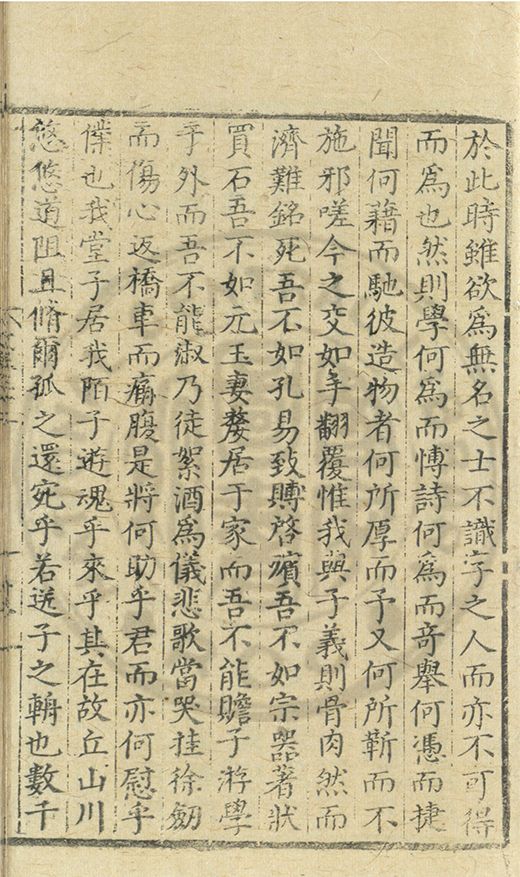 於此時雖欲爲無名之士不識字之人而亦不可得
而爲也然則學何爲而博詩何爲而奇擧何憑而捷
聞何藉而馳彼造物者何所厚而予又何所靳而不
施邪嗟今之交如手翻覆惟我與子義則骨肉然而
濟難銘死吾不如孔易致賻啓殯吾不如宗器著狀
買石吾不如元玉妻嫠居于家而吾不能贍子游學
乎外而吾不能淑乃徒絮酒爲儀悲歌當哭挂徐劒
而傷心返橋車而痛腹是將何助乎君而亦何慰乎
僕也我堂子居我陌子遊魂乎來乎其在故丘山川
悠悠道阻且脩爾孤之還宛乎若送子之輀也數千